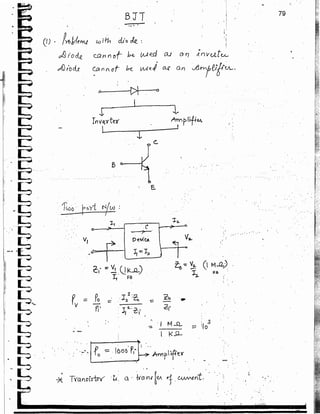 BJT
79
(1). Problems with diode :
Diode cannot be used as an inverter
Diode cannot be used as an Amplifier.
Inverter
Amplifier
C
B
E
Two port N/w :
I₁
C
I₂
V₁
Device
V₂
I₁ = I₂
Zᵢ = V₁/I₁ (1KΩ)
Z₀ = V₂/I₂ (1 MΩ)
Pᵥ = P₀/Pᵢ = I₂² Z₀ / I₁² Zᵢ = Z₀/Zᵢ
= 1 MΩ / 1 KΩ = 10³
P₀ = 1000 Pᵢ → Amplifier
* Transistor is a transfer of current.